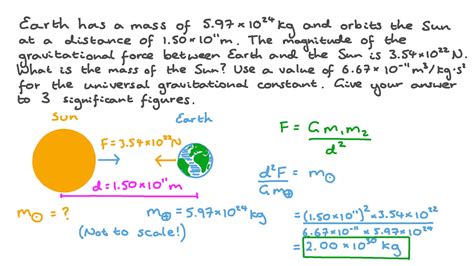 Earth has a mass of 5.97 × 10²⁴ kg and orbits the Sun
at a distance of 1.50 × 10¹¹ m. The magnitude of the
gravitational force between Earth and the Sun is 3.54 × 10²² N.
What is the mass of the Sun? Use a value of 6.67 × 10⁻¹¹ m³/kg·s²
for the universal gravitational constant. Give your answer
to 3 significant figures.
Sun
Earth
F = 3.54 × 10²² N
d = 1.50 × 10¹¹ m
m☉ = ?
m⊕ = 5.97 × 10²⁴ kg
(Not to scale!)
F = G m₁ m₂
d²
d²F = m☉
G m⊕
= (1.50 × 10¹¹)² × 3.54 × 10²²
6.67 × 10⁻¹¹ × 5.97 × 10²⁴
= 2.00 × 10³⁰ kg